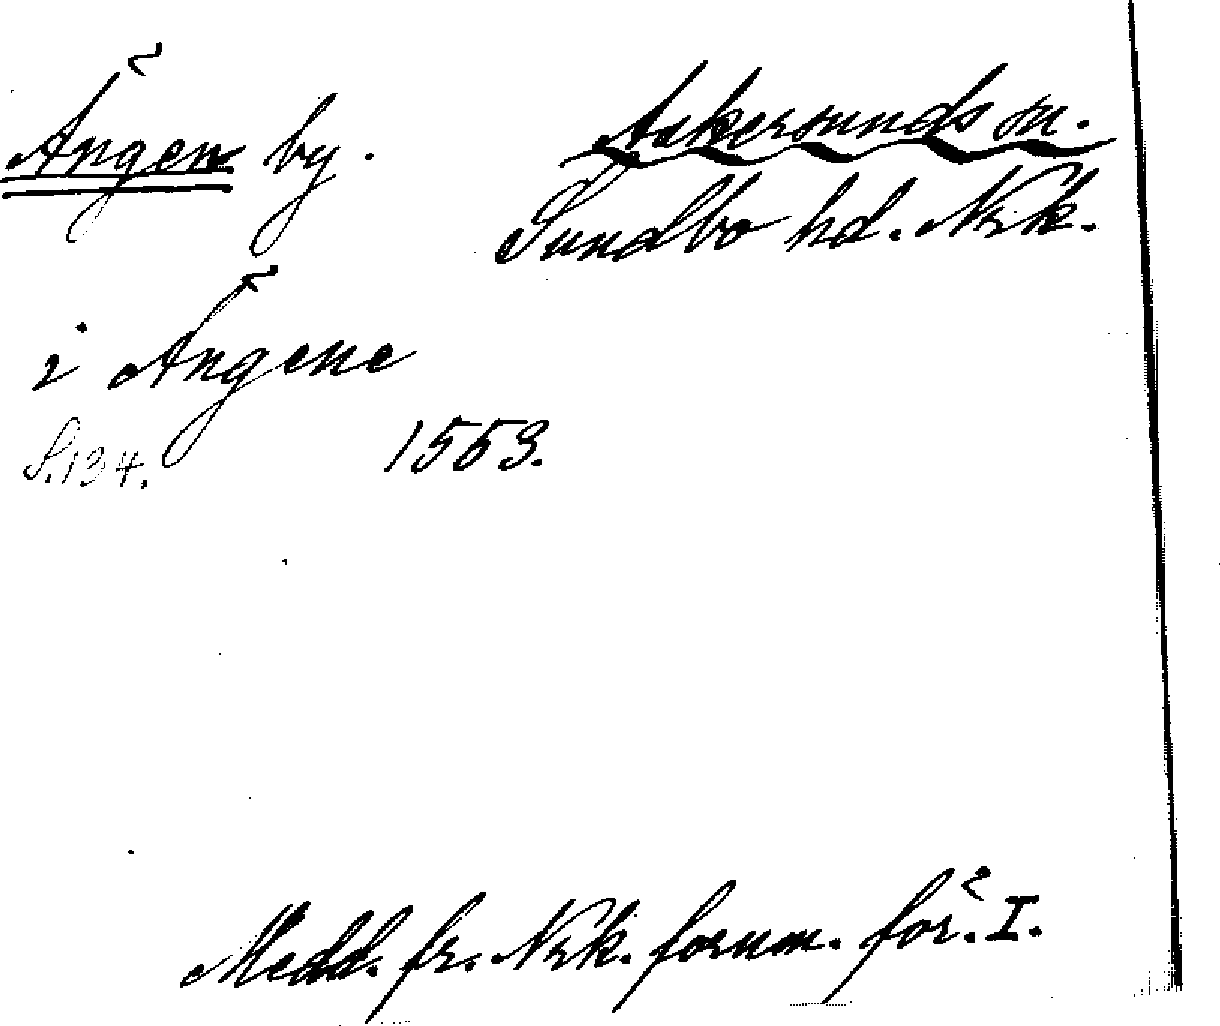 Ängen by.
Askersunds sn.
Sundbo hd. Nrk.
i Ängene
S. 134.
1553.
Medd. fr. Nrk. fornm. för. I.